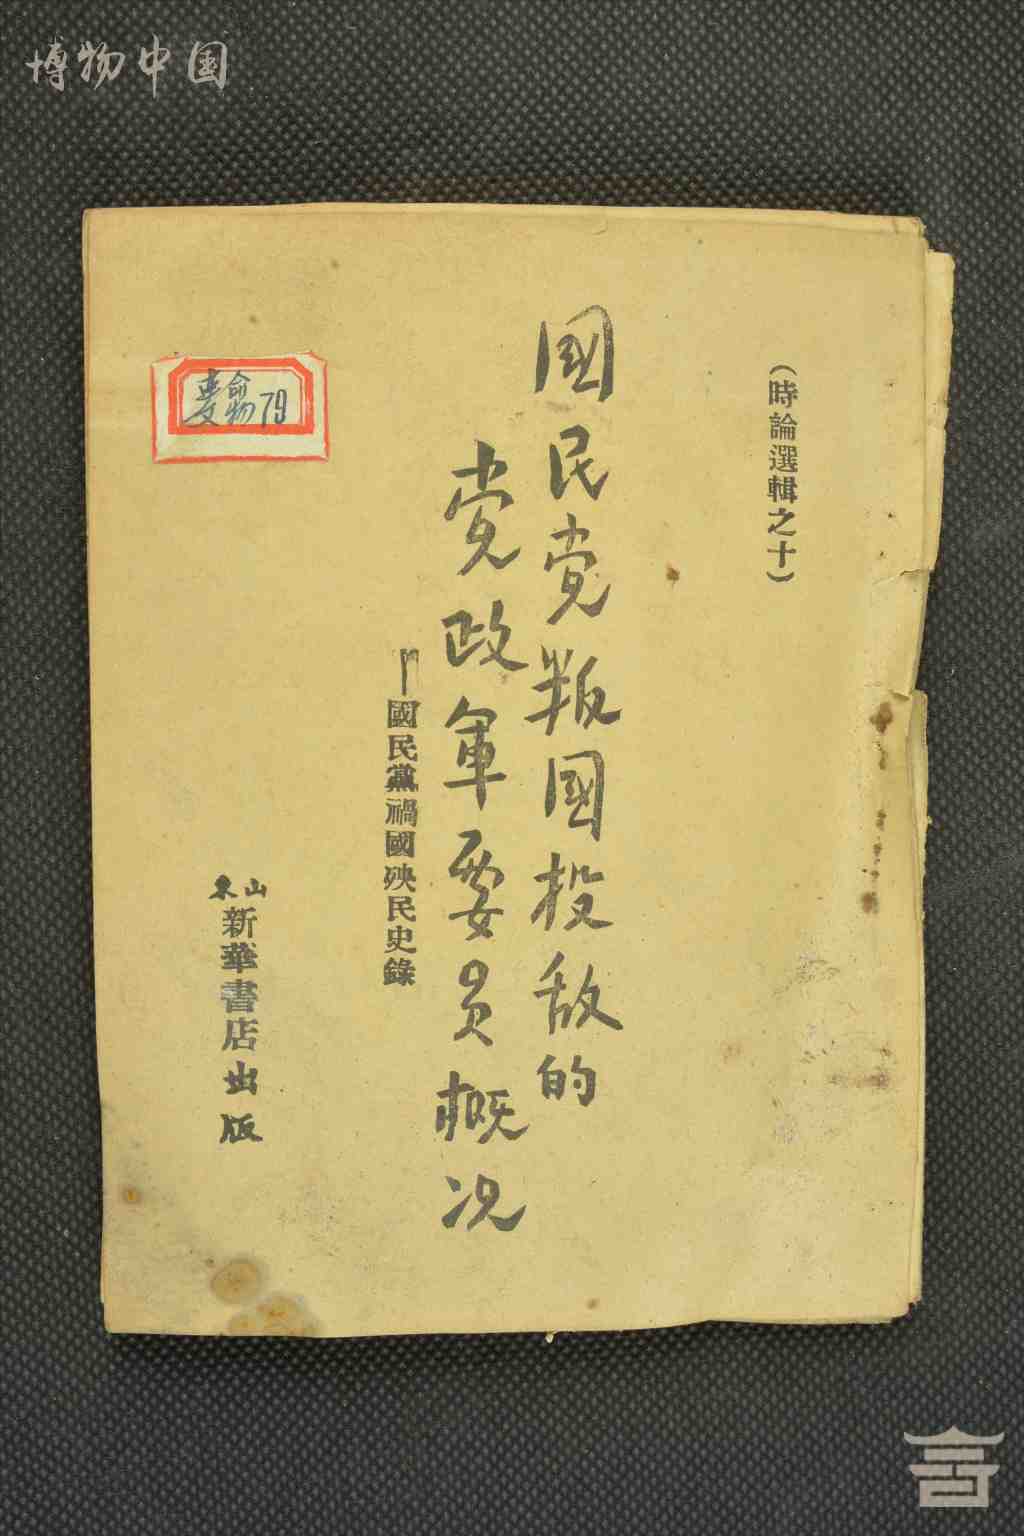 博物中国
（時論選輯之十）
國民党叛國投敌的
党政軍要員概况
——國民黨禍國殃民史錄
山东
新華書店出版
79